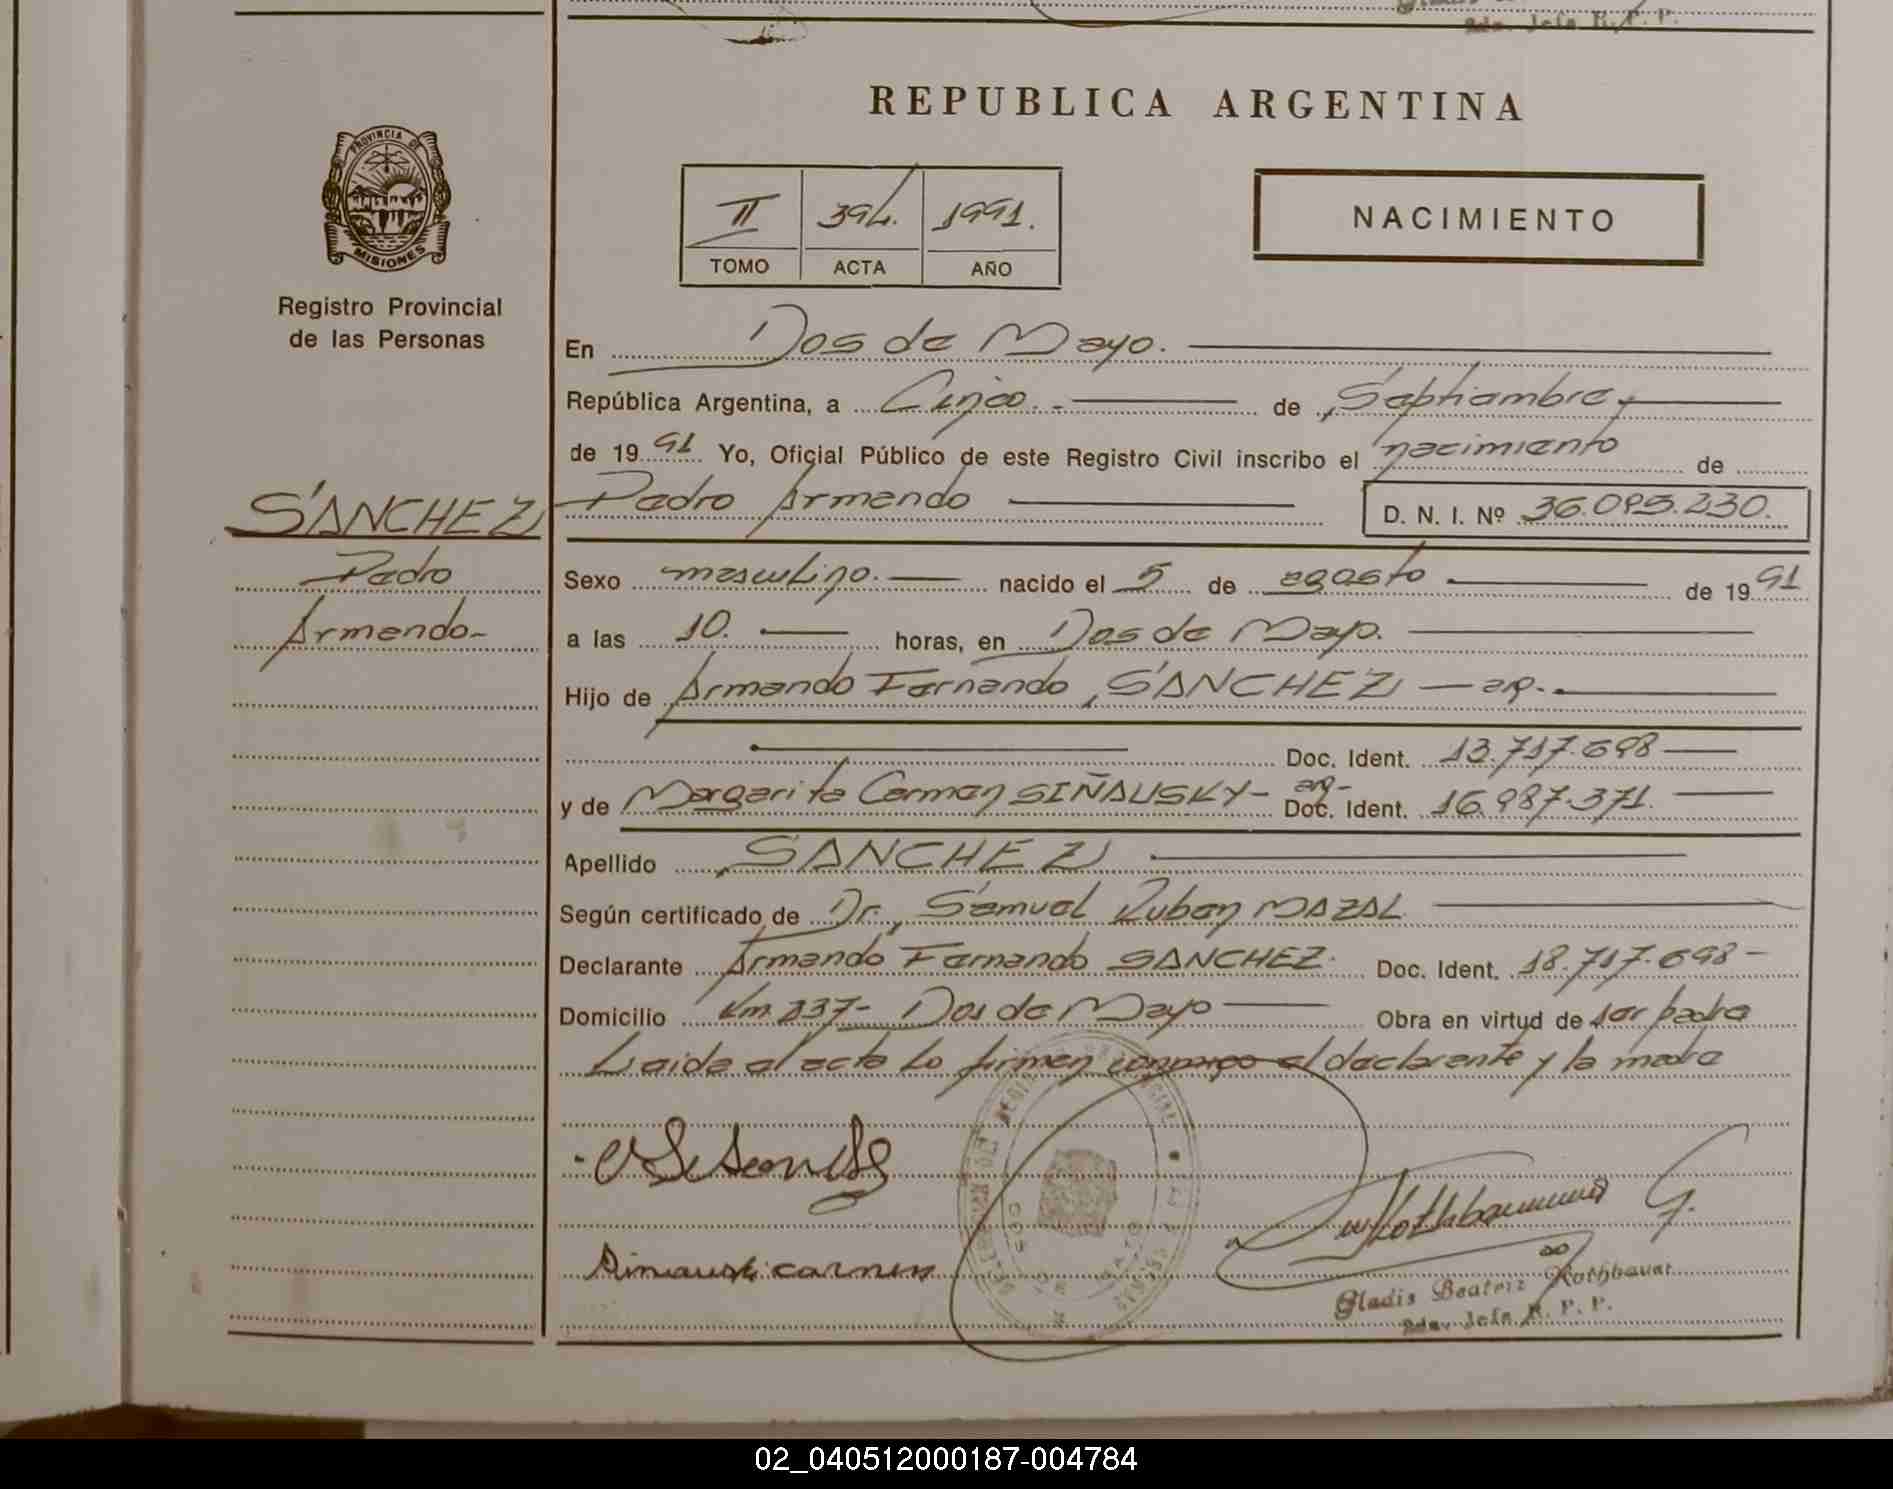 Sda. Jefa R. P. P.
REPUBLICA ARGENTINA
PROVINCIA DE
MISIONES
II 394. 1991.
TOMO ACTA AÑO
NACIMIENTO
Registro Provincial
de las Personas
En Dos de Mayo.
República Argentina, a Cinco.- de Septiembre
de 1991 Yo, Oficial Público de este Registro Civil inscribo el nacimiento de
SÁNCHEZ Pedro Armando D. N. I. Nº 36.095.230.
Pedro
Armando-
Sexo masculino. nacido el 5 de agosto de 1991
a las 10. horas, en Dos de Mayo.
Hijo de Armando Fernando SÁNCHEZ - arg.
Doc. Ident. 13.717.698
y de Margarita Carmen SIÑAUSKY- arg- Doc. Ident. 16.987.371.
Apellido SANCHEZ
Según certificado de Dr. Samuel Ruben MAZAL
Declarante Armando Fernando SANCHEZ. Doc. Ident. 18.717.698-
Domicilio Km 237- Dos de Mayo Obra en virtud de ser padre
Leida el acta Lo firman conmigo el declarante y la madre
Siniauski carmen
Gladis Beatriz Rothbauer
Sda. Jefa R. P. P.
02_040512000187-004784